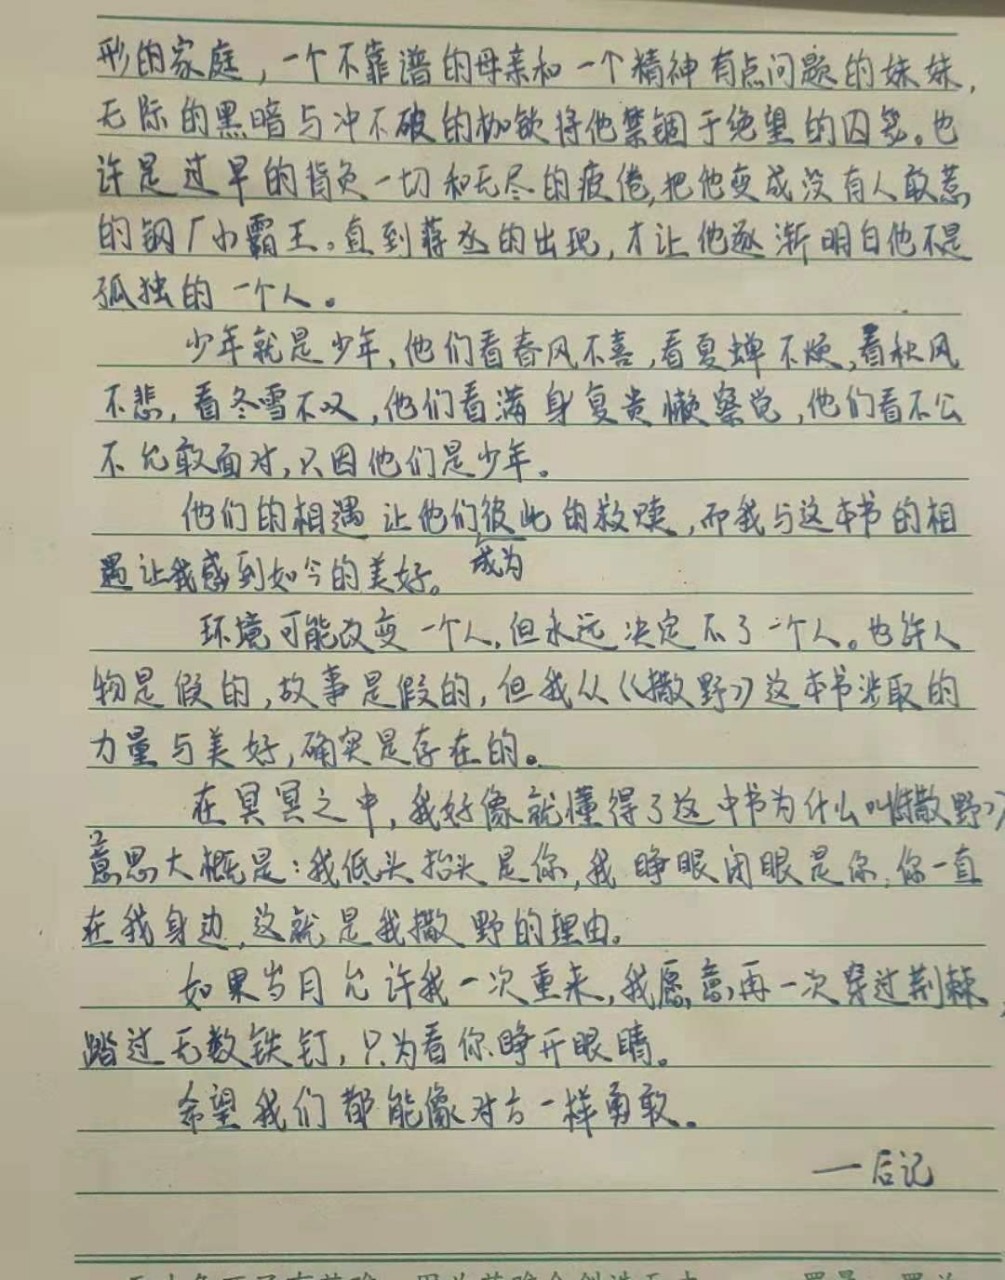 形的家庭，一个不靠谱的母亲和一个精神有点问题的妹妹，
无际的黑暗与冲不破的枷锁将他禁锢于绝望的囚笼。也
许是过早的背负一切和无尽的疲倦，把他变成没有人敢惹
的钢厂小霸王。直到蒋丞的出现，才让他逐渐明白他不是
孤独的一个人。
少年就是少年，他们看春风不喜，看夏蝉不烦，看秋风
不悲，看冬雪不叹，他们看满身复贵懒察觉，他们看不公
不允敢面对，只因他们是少年。
他们的相遇让他们成为彼此的救赎，而我与这本书的相
遇让我感到如今的美好。
环境可能改变一个人，但永远决定不了一个人。也许人
物是假的，故事是假的，但我从《撒野》这本书涉取的
力量与美好，确实是存在的。
在冥冥之中，我好像就懂得了这本书为什么叫《撒野》
意思大概是：我低头抬头是你，我睁眼闭眼是你，你一直
在我身边，这就是我撒野的理由。
如果岁月允许我一次重来，我愿意再一次穿过荆棘，
踏过无数铁钉，只为看你睁开眼睛。
希望我们都能像对方一样勇敢。
——后记